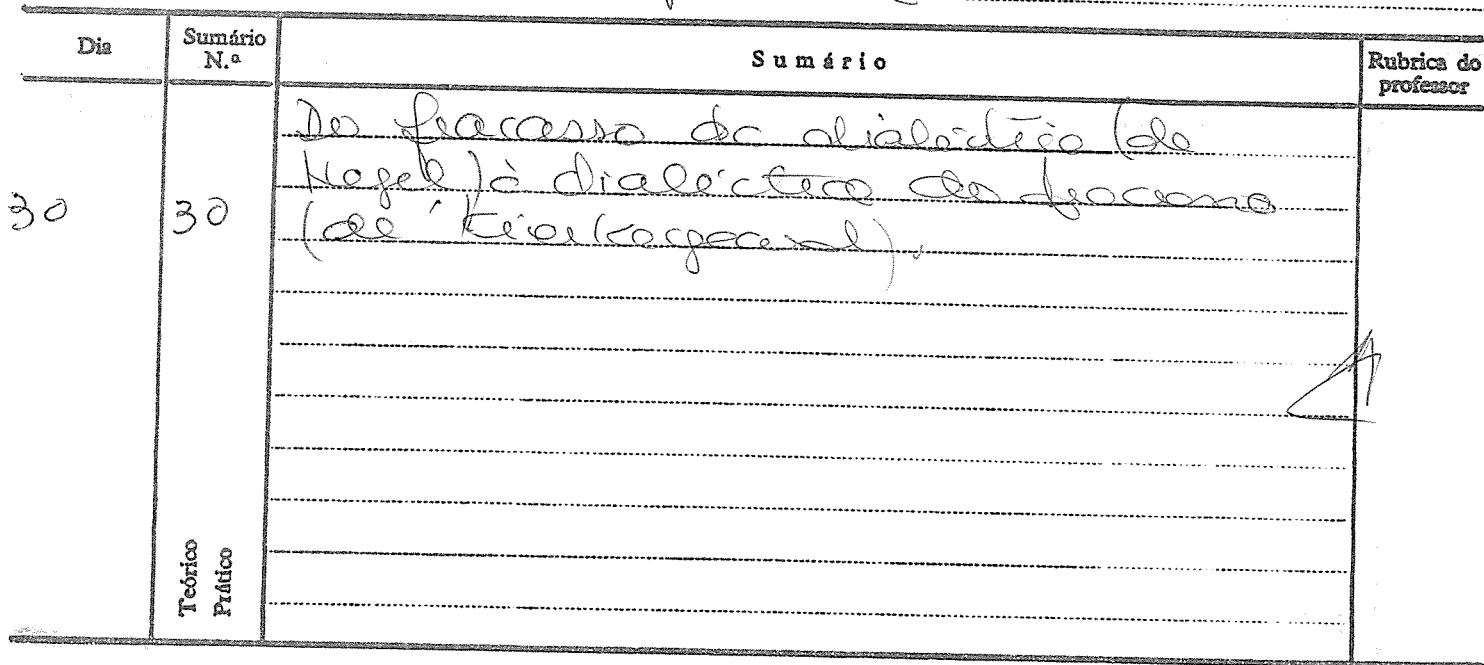 Dia
Sumário N.º
Sumário
Rubrica do professor
30
30
Do fracasso da dialéctica (de
Hegel) à dialéctica do fracasso
(de Kierkegaard).
Teórico
Prático